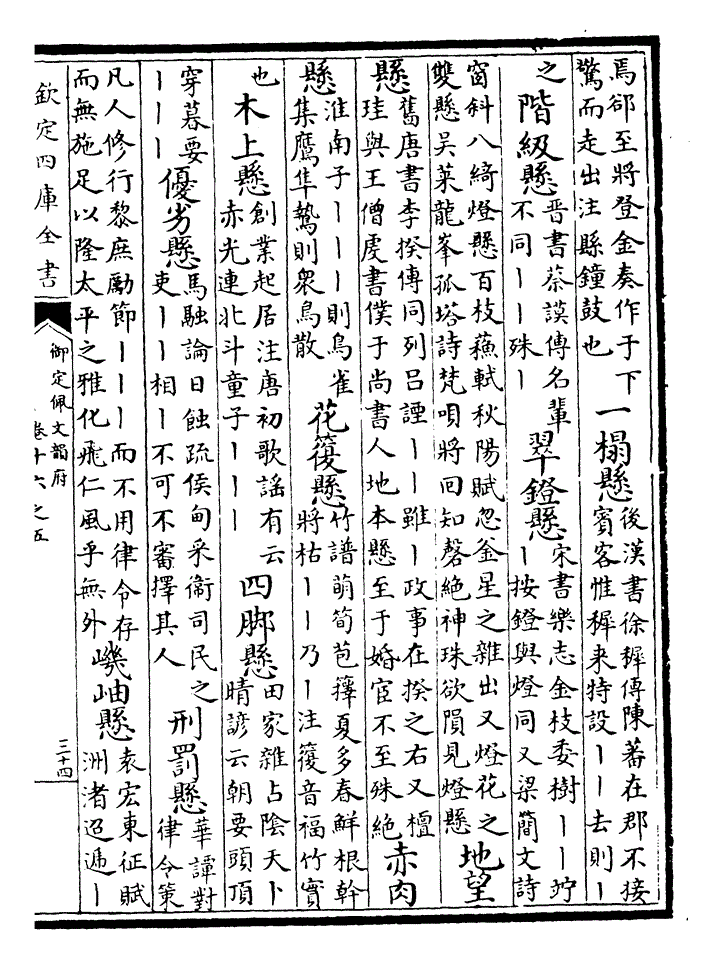 焉郤至將登金奏作于下驚而走出注縣鐘鼓也 一榻懸 後漢書徐穉傳陳蕃在郡不接賓客惟穉来特設丨丨去則丨
之 階級懸 晋書蔡謨傳名輩不同丨丨殊丨 翠鐙懸 宋書樂志金枝委樹丨丨竚丨按鐙與燈同又梁簡文詩
窗斜八綺燈懸百枝蘓軾秋陽賦忽釜星之雜出又燈花之雙懸吳莱龍峯孤塔詩梵唄將回知磬絶神珠欲隕見燈懸 地望
懸 舊唐書李揆傳同列吕諲丨丨雖丨政事在揆之右又檀珪與王僧虔書僕于尚書人地本懸至于婚宦不至殊絶 赤肉
懸 淮南子丨丨丨則烏雀集鷹隼鷙則衆鳥散 花䈏懸 竹譜萌筍苞籜夏多春鮮根幹將枯丨丨乃丨注䈏音福竹實
也 木上懸 創業起居注唐初歌謡有云赤光連北斗童子丨丨丨 四脚懸 田家雜占陰天卜晴諺云朝要頭頂
穿暮要丨丨丨 優劣懸 馬融論日蝕疏侯甸采衛司民之吏丨丨相丨不可不審擇其人 刑罰懸 華譚對律令策
凡人修行黎庶勵節丨丨丨而不用律令存而無施足以隆太平之雅化飛仁風乎無外 㠖岫懸 袁宏東征賦洲渚迢遞丨
欽定四庫全書 御定佩文韻府 卷十六之五 三十四